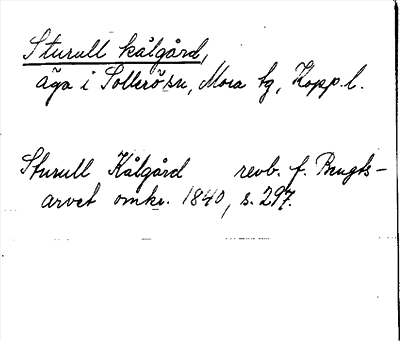 Sturull kålgård,
äga i Sollerösn, Mora tg, Kopp. l.
Sturull Kålgård revb. f. Bengts-
arvet omkr. 1840, s. 297.